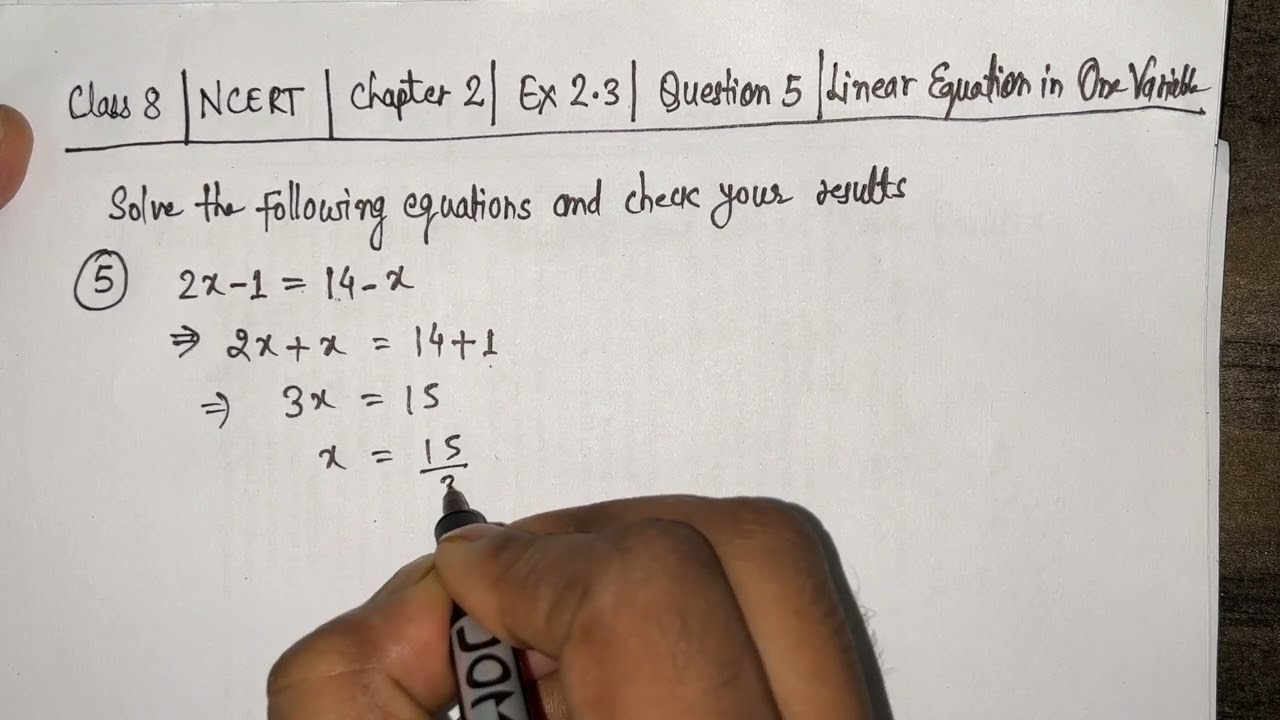 Class 8 | NCERT | Chapter 2 | Ex 2.3 | Question 5 | Linear Equation in One Variable
Solve the following equations and check your results
5 2x-1 = 14-x
⇒ 2x+x = 14+1
⇒ 3x = 15
x = 15/3